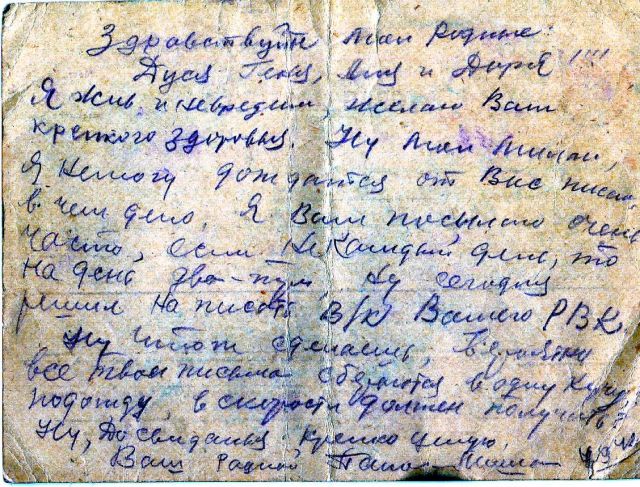 Здравствуйте мои родные:
Дуся Гена, Лиц и Дарья!!!!
Я жив и невредим, желаю Вам
крепкого здоровья. Ну мои милаи,
Я немогу дождатся от Вас писем,
в чем дело. Я Вам посылаю очень
часто, если некаждый день, то
на день два-три, Ну сегодня
решил написать в/к Вашего РВК.
Ну чтож сделаешь, вероятно
все твои письма сбераются в одну кучу,
подожду, в скорости должен получить
Ну, Досвиданья, крепко целую.
Ваш родной Папа-Миша